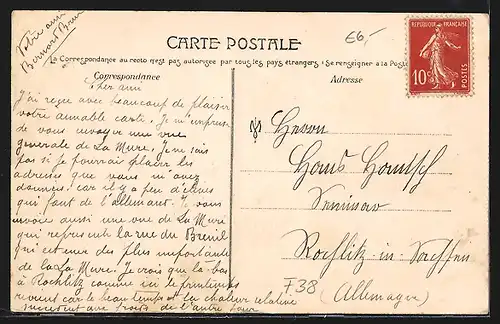 Votre ami
Bernard Brun
CARTE POSTALE
€6,-
La Correspondance au recto n'est pas autorisée par tous les pays étrangers (Se renseigner à la Poste
Correspondance
Adresse
RÉPUBLIQUE FRANÇAISE
10c
POSTES
Cher ami
J'ai reçu avec beaucoup de plaisir
votre aimable carte. Je m'empresse
de vous envoyer une vue
générale de La Mure. Je ne sais
pas si je pourrais placer les
adresses que vous m'avez
données, car il y a peu d'élèves
qui font de l'allemand. Je vous
envoie aussi une vue de La Mure
qui représente la rue du Breuil
qui est une des plus importantes
de La Mure. Je crois que là-bas
à Rochlitz comme ici le printemps
revient car le beau temps et la chaleur
succèdent aux froids de l'autre jour
Herrn
Hans
Seminar
Rochlitz-in-Sachsen
(Allemagne)
F38